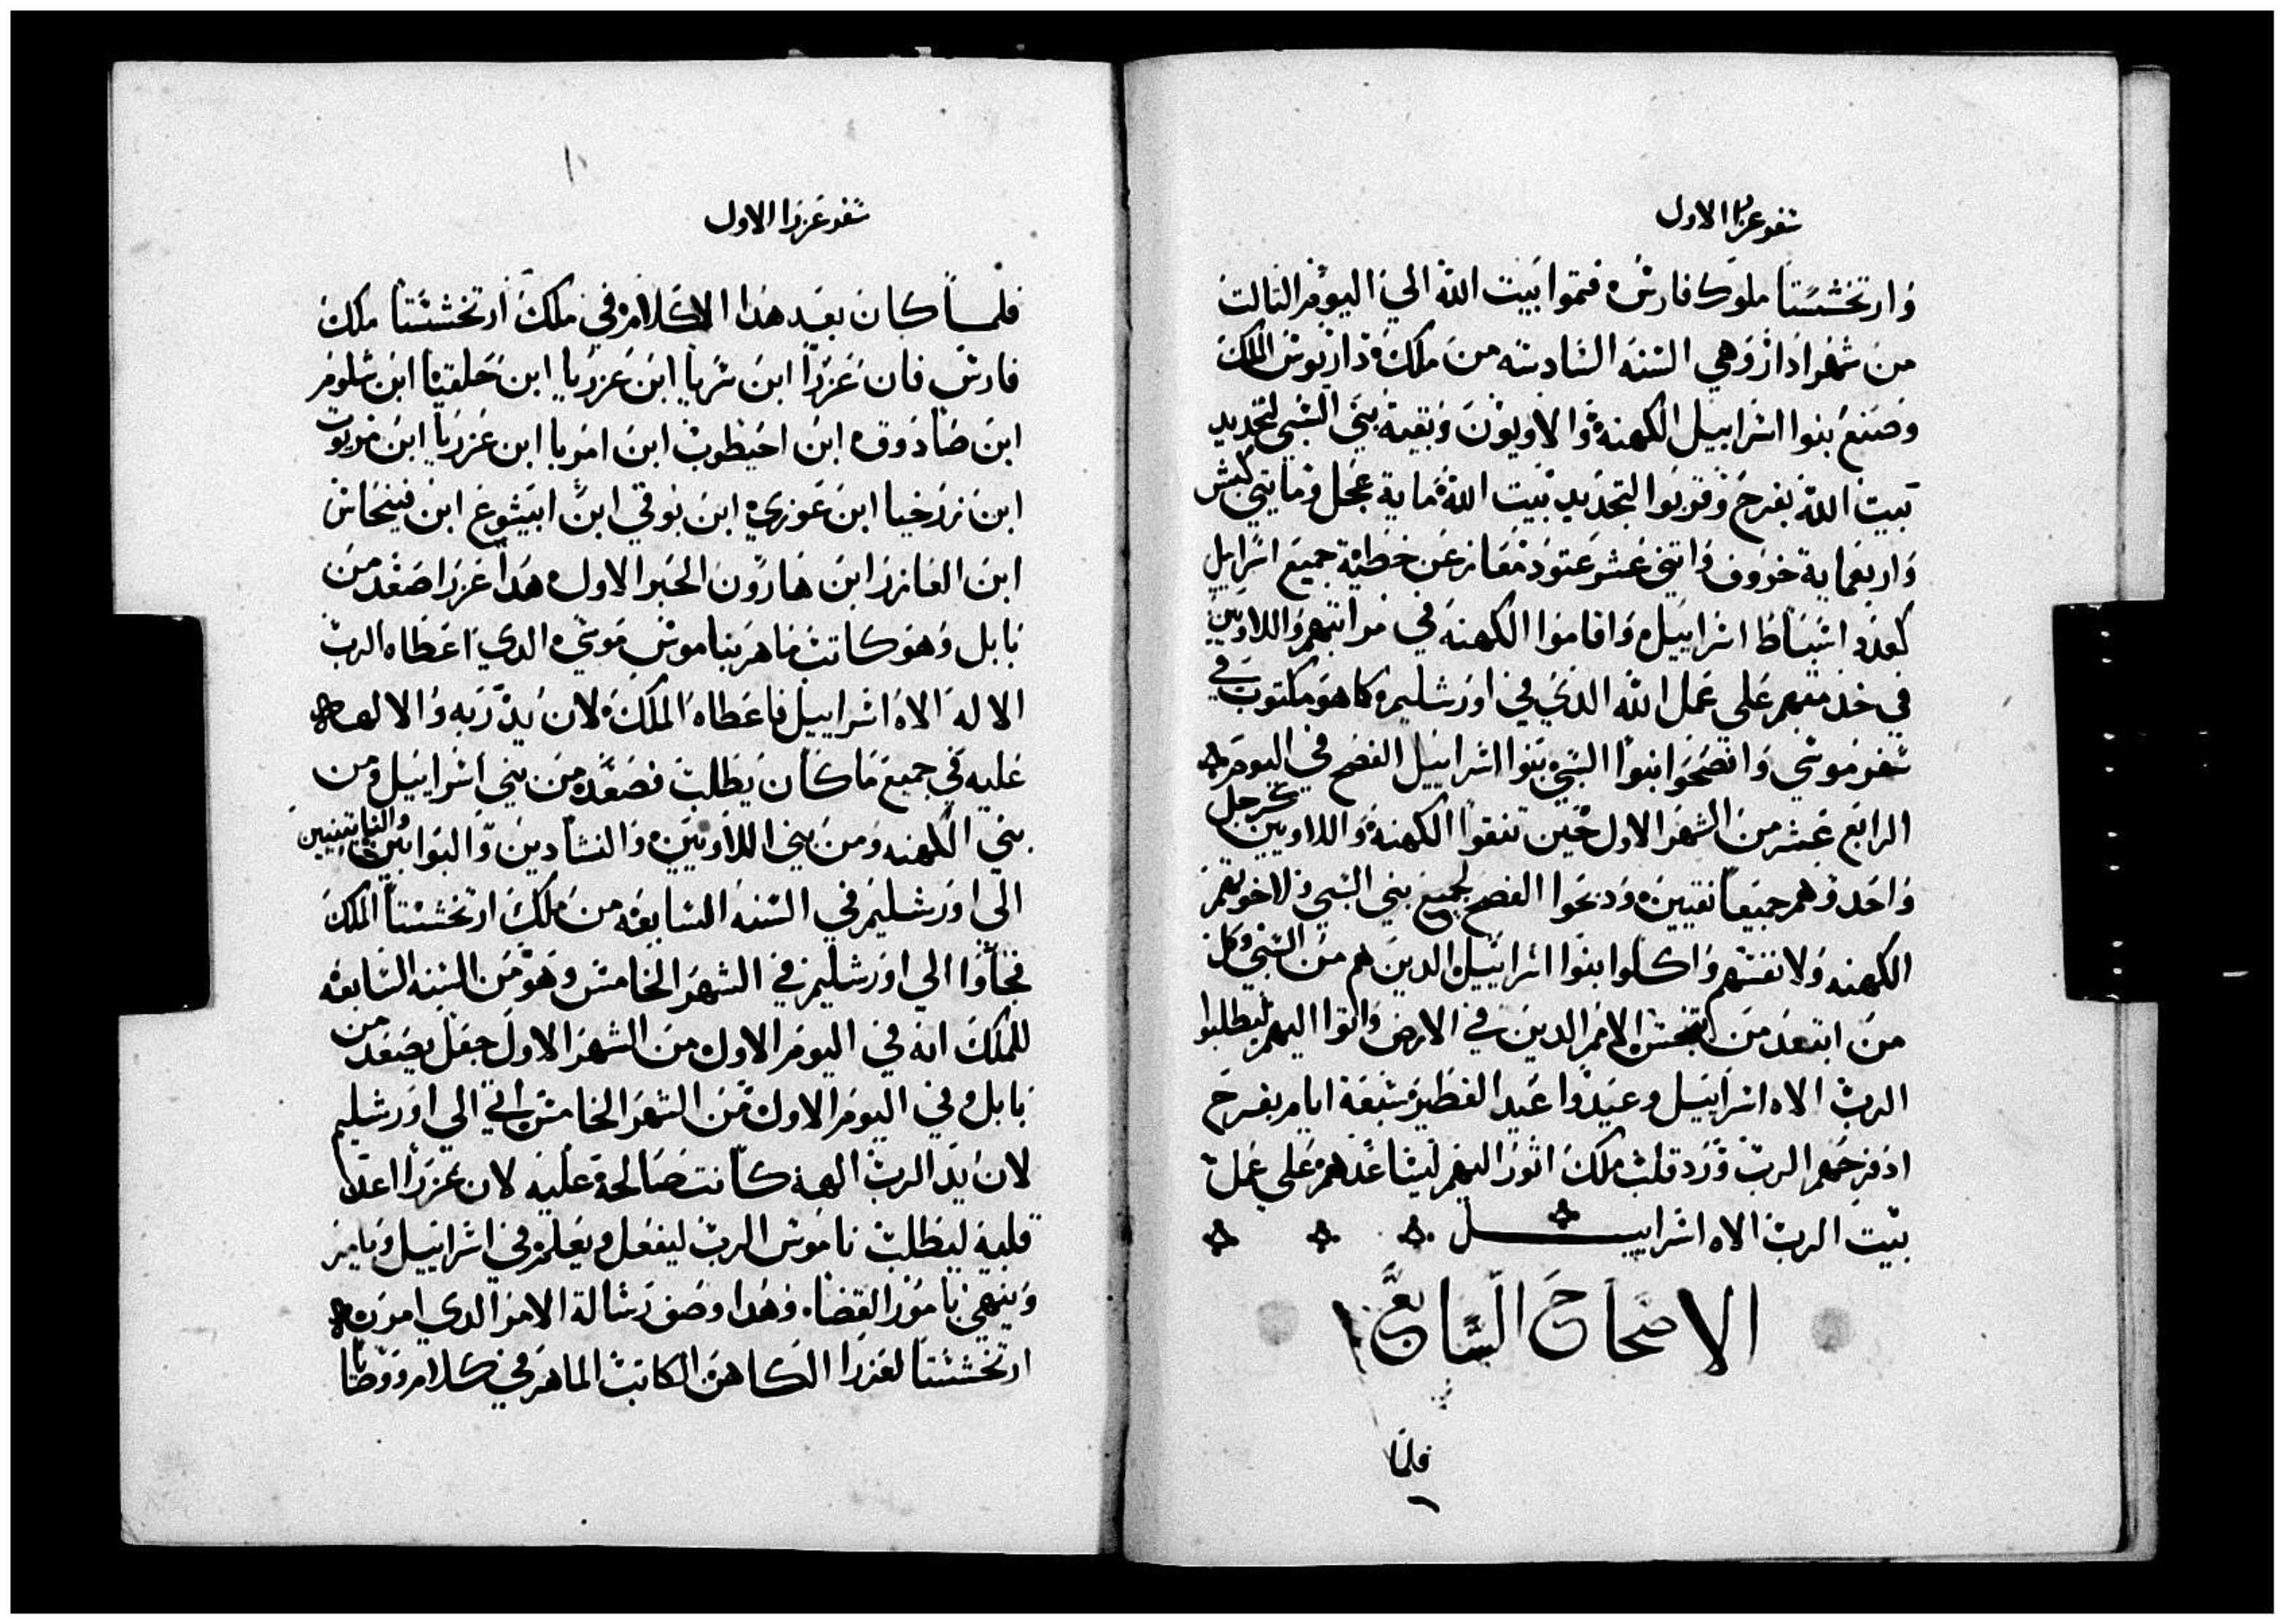 سفر عزرا الاول
وارتخششتا ملوك فارس فتموا بيت الله الي اليوم التالت
من شهر ادار وهي السنه السادسه من ملكه داريوس الملك
وصنع بنوا اسراييل الكهنه والاويون وبقية بني السبي لتجديد
بيت الله بفرح وقربوا لتجديد بيت الله ماية عجل ومايتي كبش
واربعماية خروف واتني عشر عتود معاز عن خطية جميع اسراييل
كعدد اسباط اسراييل واقاموا الكهنه في مراتبهم واللاويين
في خدمتهم علي عمل الله الدي في اورشليم كما هو مكتوب في
سفر موسي وافصحوا بنوا السبي بنوا اسراييل الفصح في اليوم
الرابع عشر من الشهر الاول حين تنقوا الكهنه واللاويين كرجل
واحد وهم جميعا نقيين ودبحوا الفصح لجميع بني السبي ولاخوتهم
الكهنه ولانفسهم واكلوا بنوا اسراييل الدين هم من السبي وكل
من ابتعد من نجس الامم الدين في الارض واتوا اليهم ليطلبوا
الرب الاه اسراييل وعيدوا عيد الفطير سبعة ايام بفرح
اد فرحهم الرب ورد قلب ملك اتور اليهم ليساعدهم علي عمل
بيت الرب الاه اسراييل
الاصحاح السابع
فلما
سفر عزرا الاول
فلما كان بعد هدا الكلام في ملك ارتخششتا ملك
فارس فان عزرا ابن سريا ابن عزريا ابن حلقيا ابن شلوم
ابن صادوق ابن احيطوب ابن امريا ابن عزريا ابن مريوت
ابن زرحيا ابن عوزي ابن بوقي ابن ابيشوع ابن فينحاس
ابن العازر ابن هارون الحبر الاول هدا عزرا صعد من
بابل وهو كاتب ماهر بناموس موسي الدي اعطاه الرب
الاله الاه اسراييل فاعطاه الملك لان يد ربه والاهه
عليه في جميع ما كان يطلب فصعد من بني اسراييل ومن
بني الكهنه ومن بني اللاويين والنشادين والبوابين والناتينيين
الي اورشليم في السنه السابعه من ملك ارتخششتا الملك
فجاوا الي اورشليم في الشهر الخامس وهو من السنه السابعه
للملك انه في اليوم الاول من الشهر الاول جعل يصعد من
بابل وفي اليوم الاول من الشهر الخامس اتي الي اورشليم
لان يد الرب الهه كانت صالحة عليه لان عزرا اعد
قلبه ليطلب ناموس الرب ليفعل ويعلم في اسراييل ويامر
وينهي بامور القضاه وهدا وصف رسالة الامر الدي امره
ارتخششتا لعزرا الكاهن الكاتب الماهر في كلام ووصايا